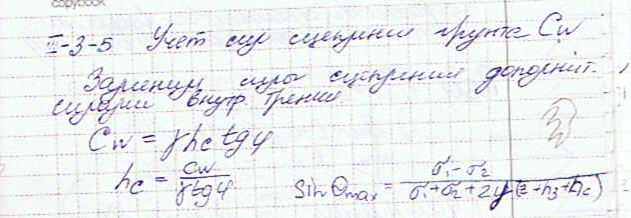 copybook
III-3-5 Учет сил сцепления грунта Cw
Заменим силы сцепления дополнит.
силами внутр. трения
Cw = γhc tgφ
hc = Cw / γtgφ
sinΘmax = σ1-σ2 / σ1+σ2+2γ(z+h3+hc)